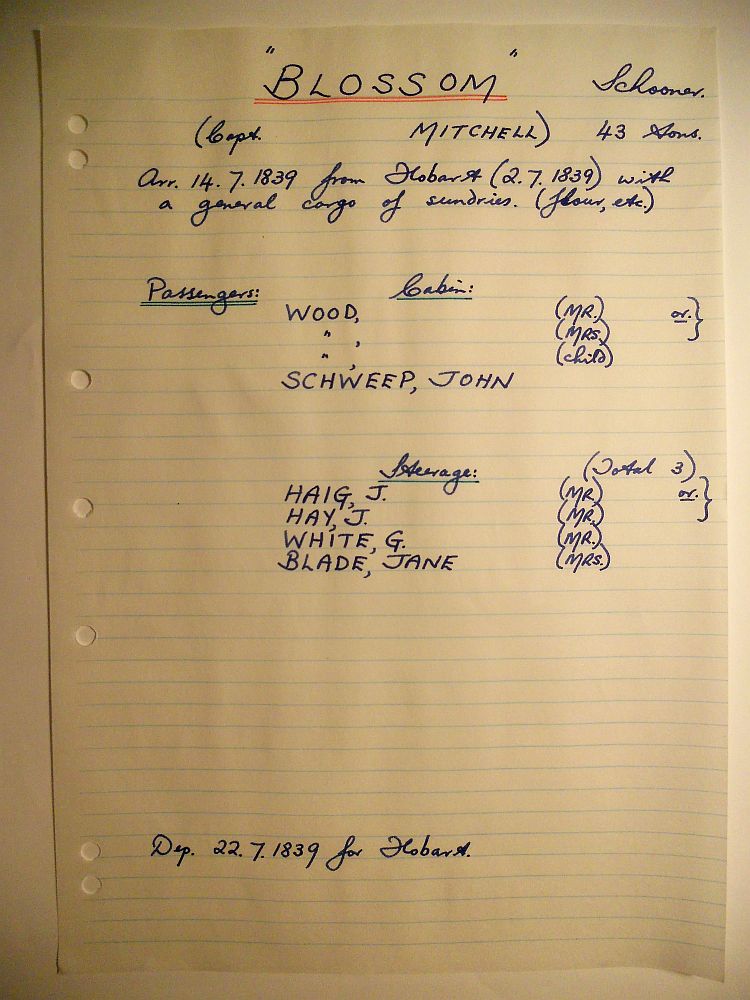 "BLOSSOM" Schooner.
(Capt. MITCHELL) 43 tons.
Arr. 14.7.1839 from Hobart (2.7.1839) with
a general cargo of sundries. (flour, etc.)
Passengers: Cabin:
WOOD, (MR.) or. }
" , (MRS.)
" , (child)
SCHWEEP, JOHN
Steerage: (Total 3)
HAIG, J. (MR.) or. }
HAY, J. (MR.)
WHITE, G. (MR.)
BLADE, JANE (MRS.)
Dep. 22.7.1839 for Hobart.